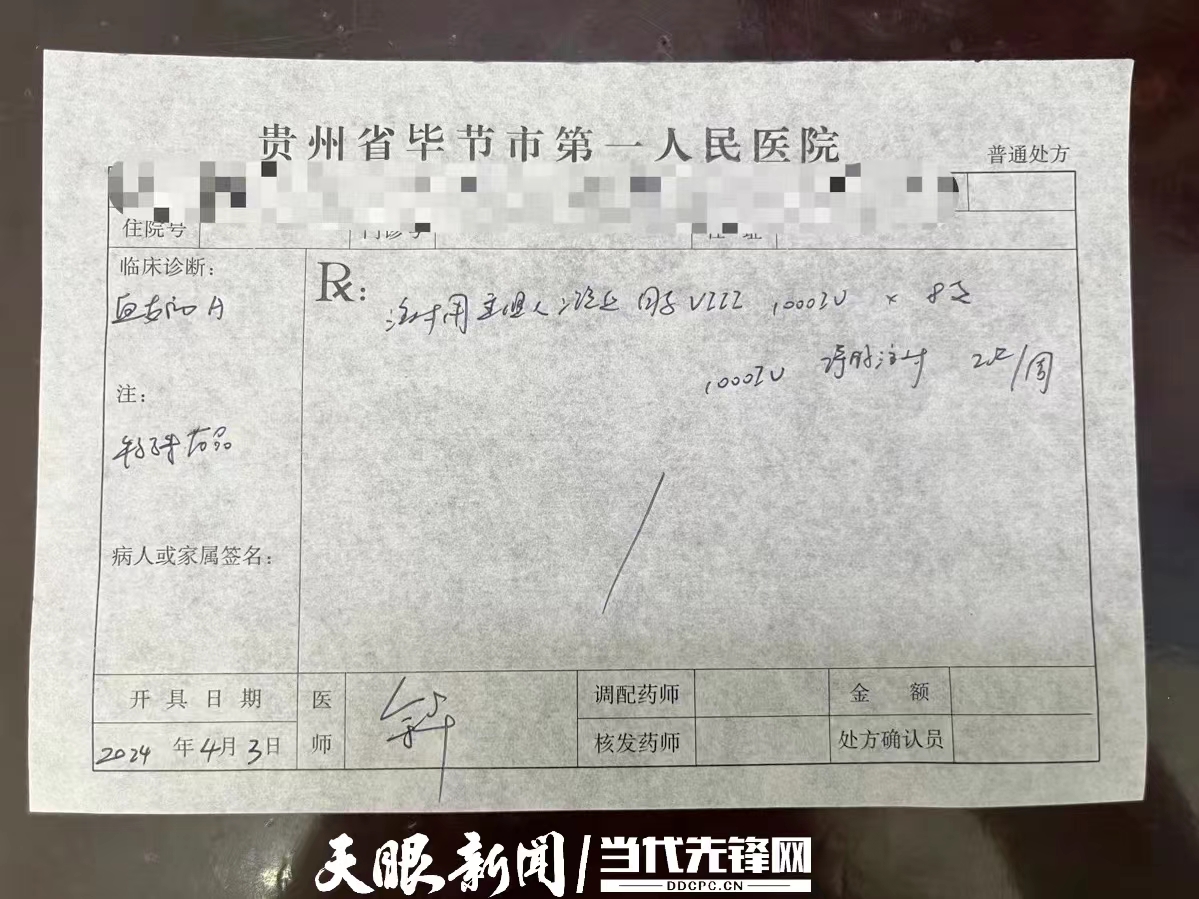 贵州省毕节市第一人民医院
普通处方
住院号
临床诊断:
血友病A
Rx:
注射用重组人凝血因子VIII 1000IU × 8支
1000IU 静脉注射 2次/周
注:
特殊药品
病人或家属签名:
开具日期
2024年4月3日
医师
调配药师
金额
核发药师
处方确认员
天眼新闻/当代先锋网
DDCPC.CN